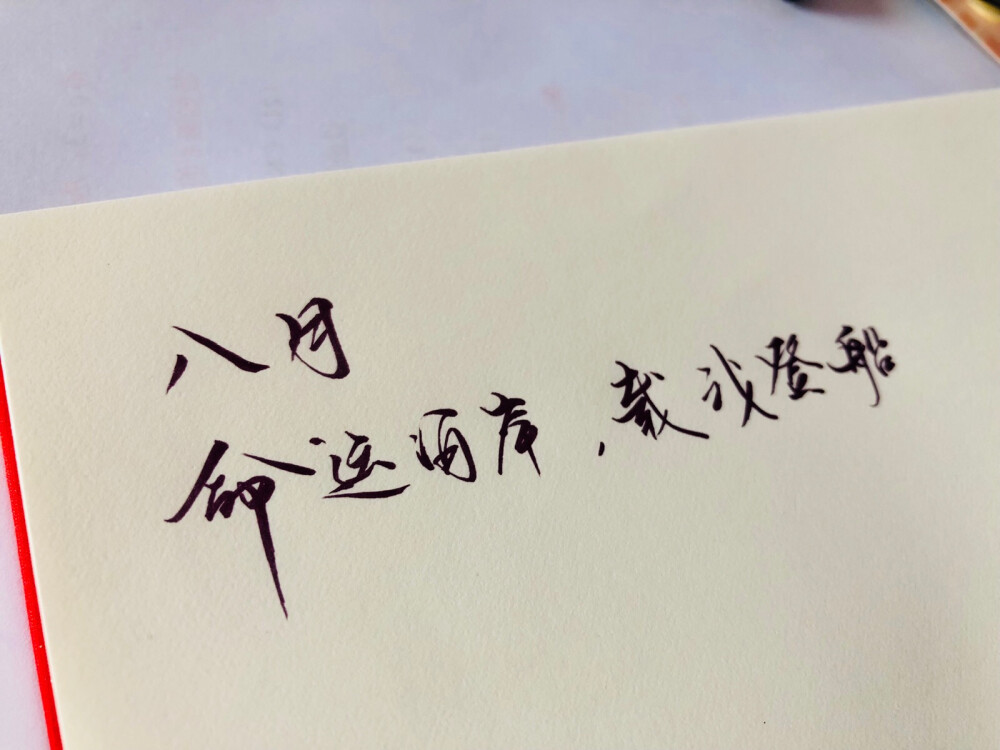 八月
命运洒岸，载我登船